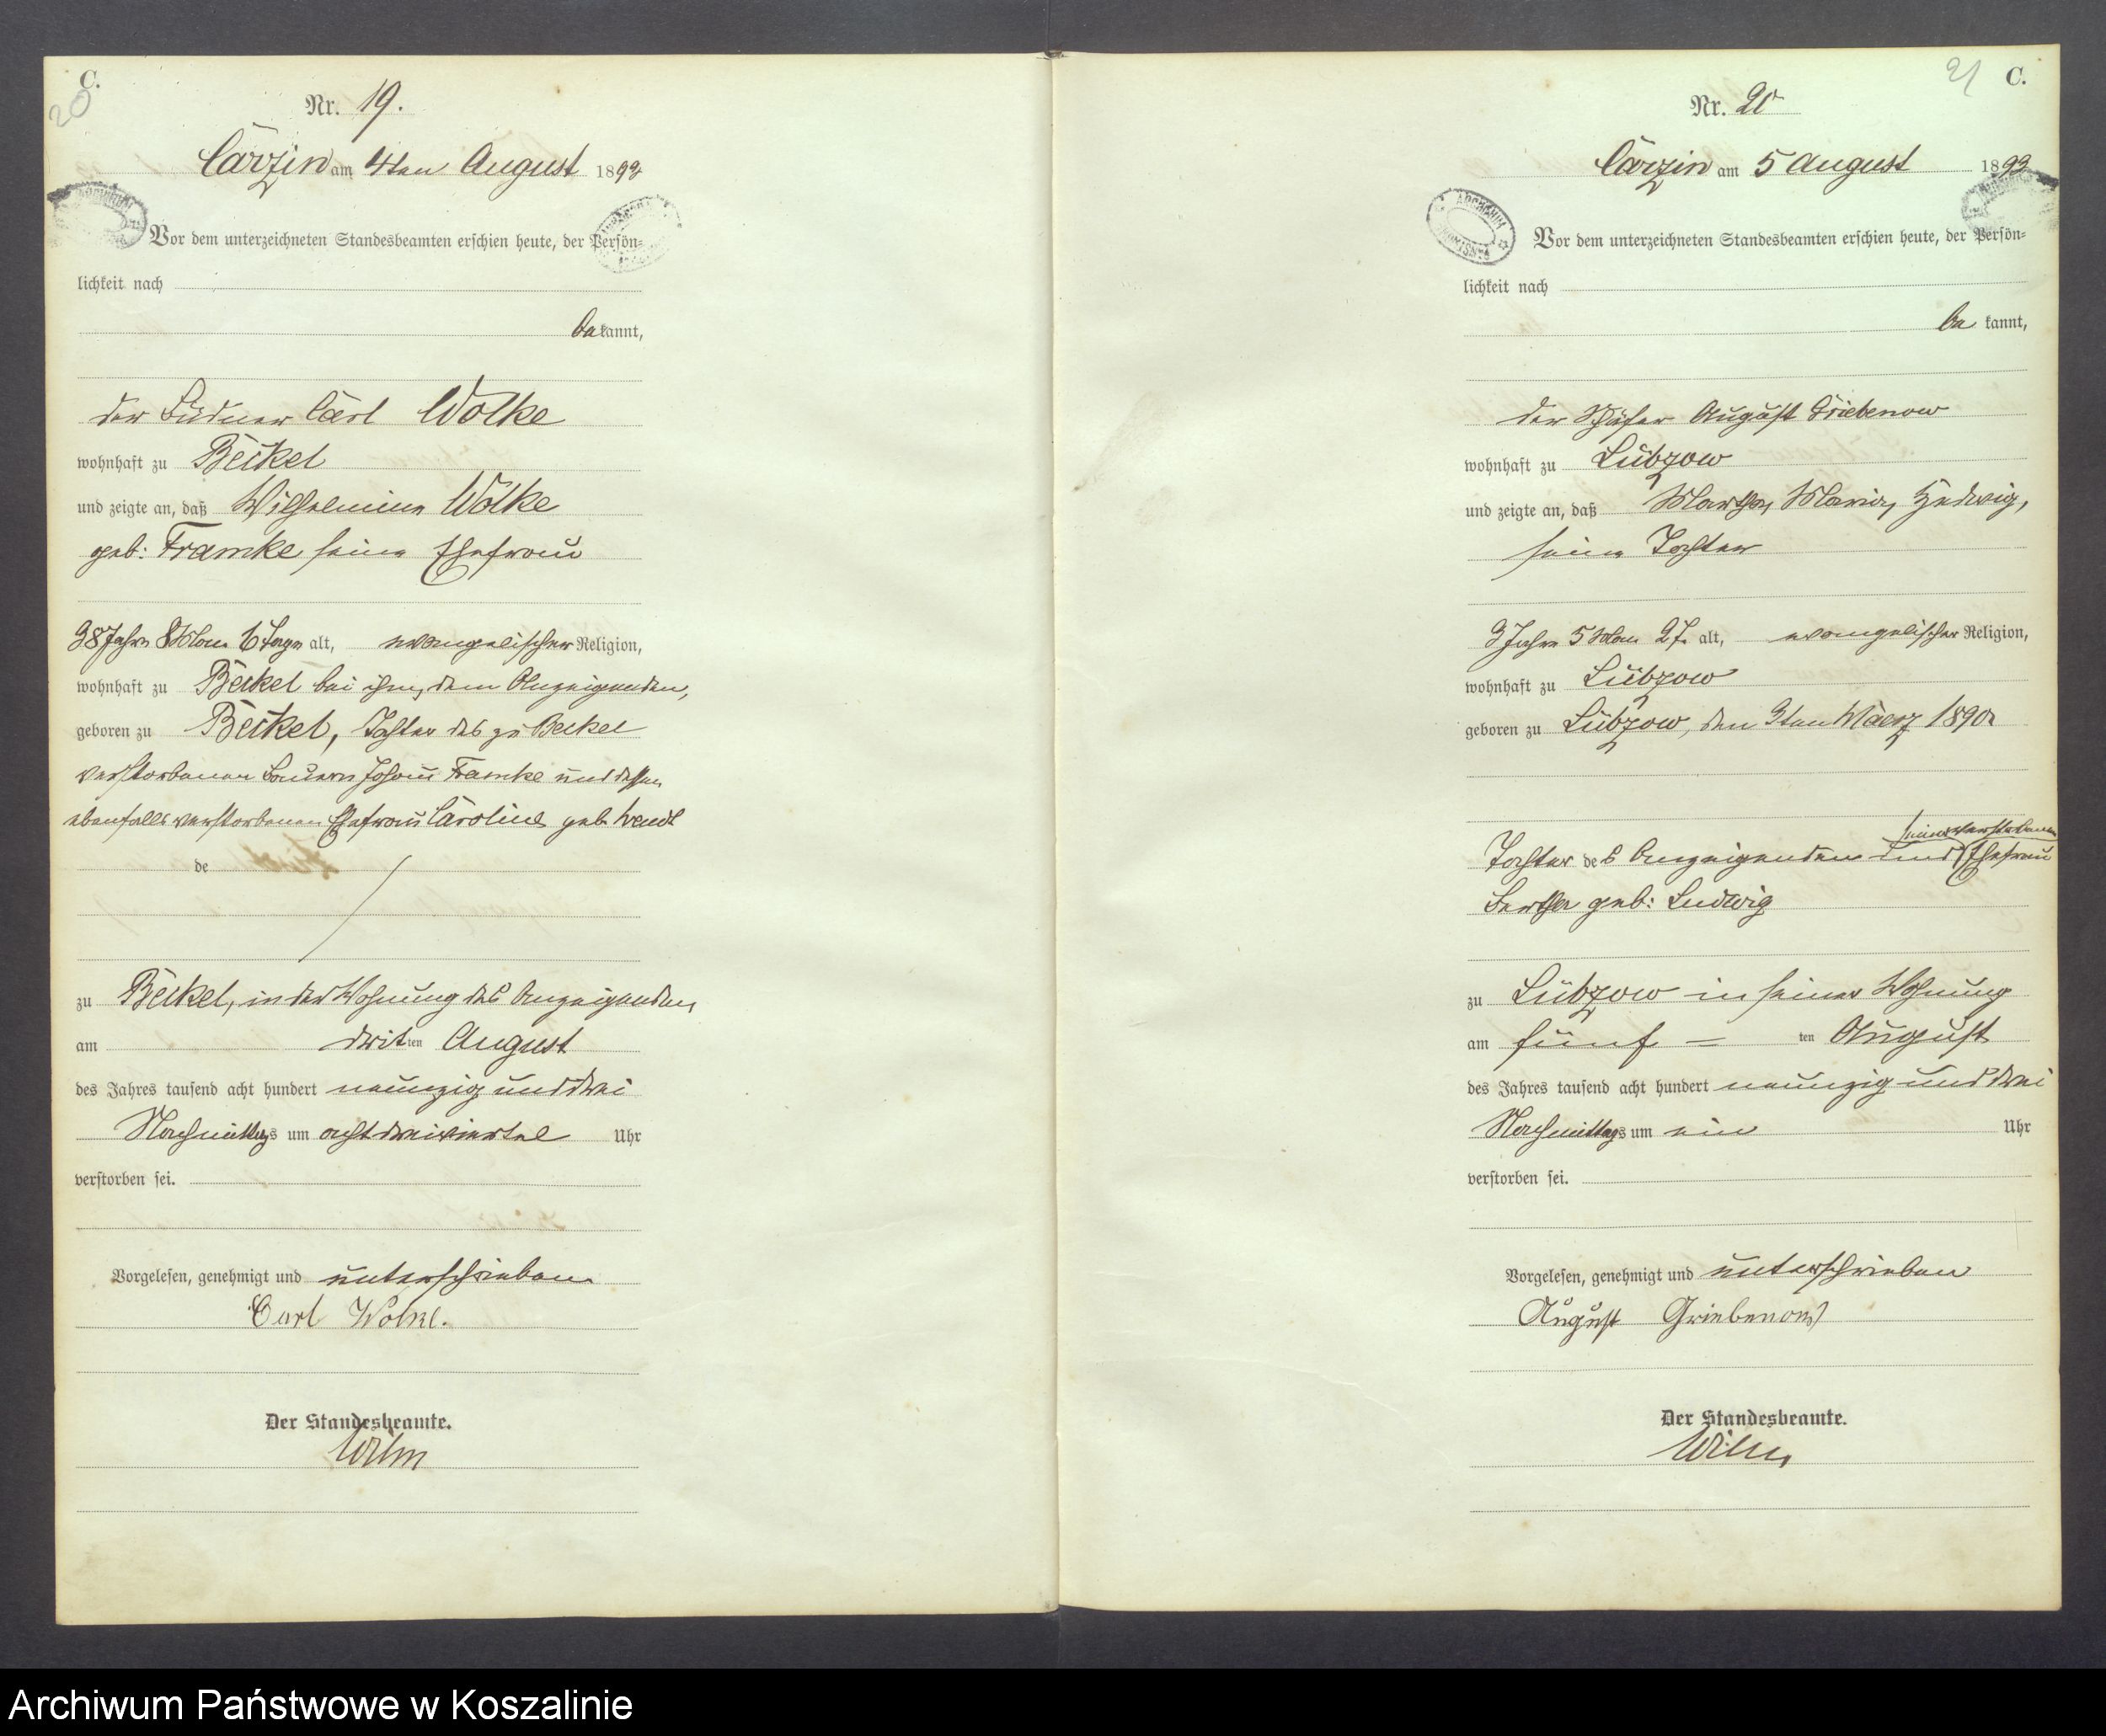 C.
20
Nr. 19.
Carzin am 4ten August 1893
Vor dem unterzeichneten Standesbeamten erschien heute, der Persön-
lichkeit nach
bekannt,
der Büdner Carl Wolke
wohnhaft zu Beckel
und zeigte an, daß Wilhelmine Wolke
geb: Framke seine Ehefrau
38 Jahre 8 Mon. 6 Tage alt, evangelischer Religion,
wohnhaft zu Beckel bei ihm, dem Anzeigenden,
geboren zu Beckel, Tochter des zu Beckel
verstorbenen Bauern Johann Framke und dessen
ebenfalls verstorbenen Ehefrau Caroline geb. Wendt
de
zu Beckel, in der Wohnung des Anzeigenden,
am dritten August
des Jahres tausend acht hundert neunzig und drei
Nachmittags um acht dreiviertel Uhr
verstorben sei.
Vorgelesen, genehmigt und unterschrieben
Carl Wolke.
Der Standesbeamte.
Wilm
21 C.
Nr. 20
Carzin am 5 August 1893
Vor dem unterzeichneten Standesbeamten erschien heute, der Persön-
lichkeit nach
be kannt,
der Schäfer August Griebenow
wohnhaft zu Lübzow
und zeigte an, daß Martha, Maria, Hedwig,
seine Tochter
3 Jahre 5 Mon. 2 T. alt, evangelischer Religion,
wohnhaft zu Lübzow
geboren zu Lübzow, den 3ten Maerz 1890
seiner verstorbenen
Tochter des Anzeigenden und Ehefrau
Bertha geb: Ludwig
zu Lübzow in seiner Wohnung
am fünf = ten August
des Jahres tausend acht hundert neunzig und drei
Nachmittags um ein Uhr
verstorben sei.
Vorgelesen, genehmigt und unterschrieben
August Griebenow
Der Standesbeamte.
Wilm
Archiwum Państwowe w Koszalinie